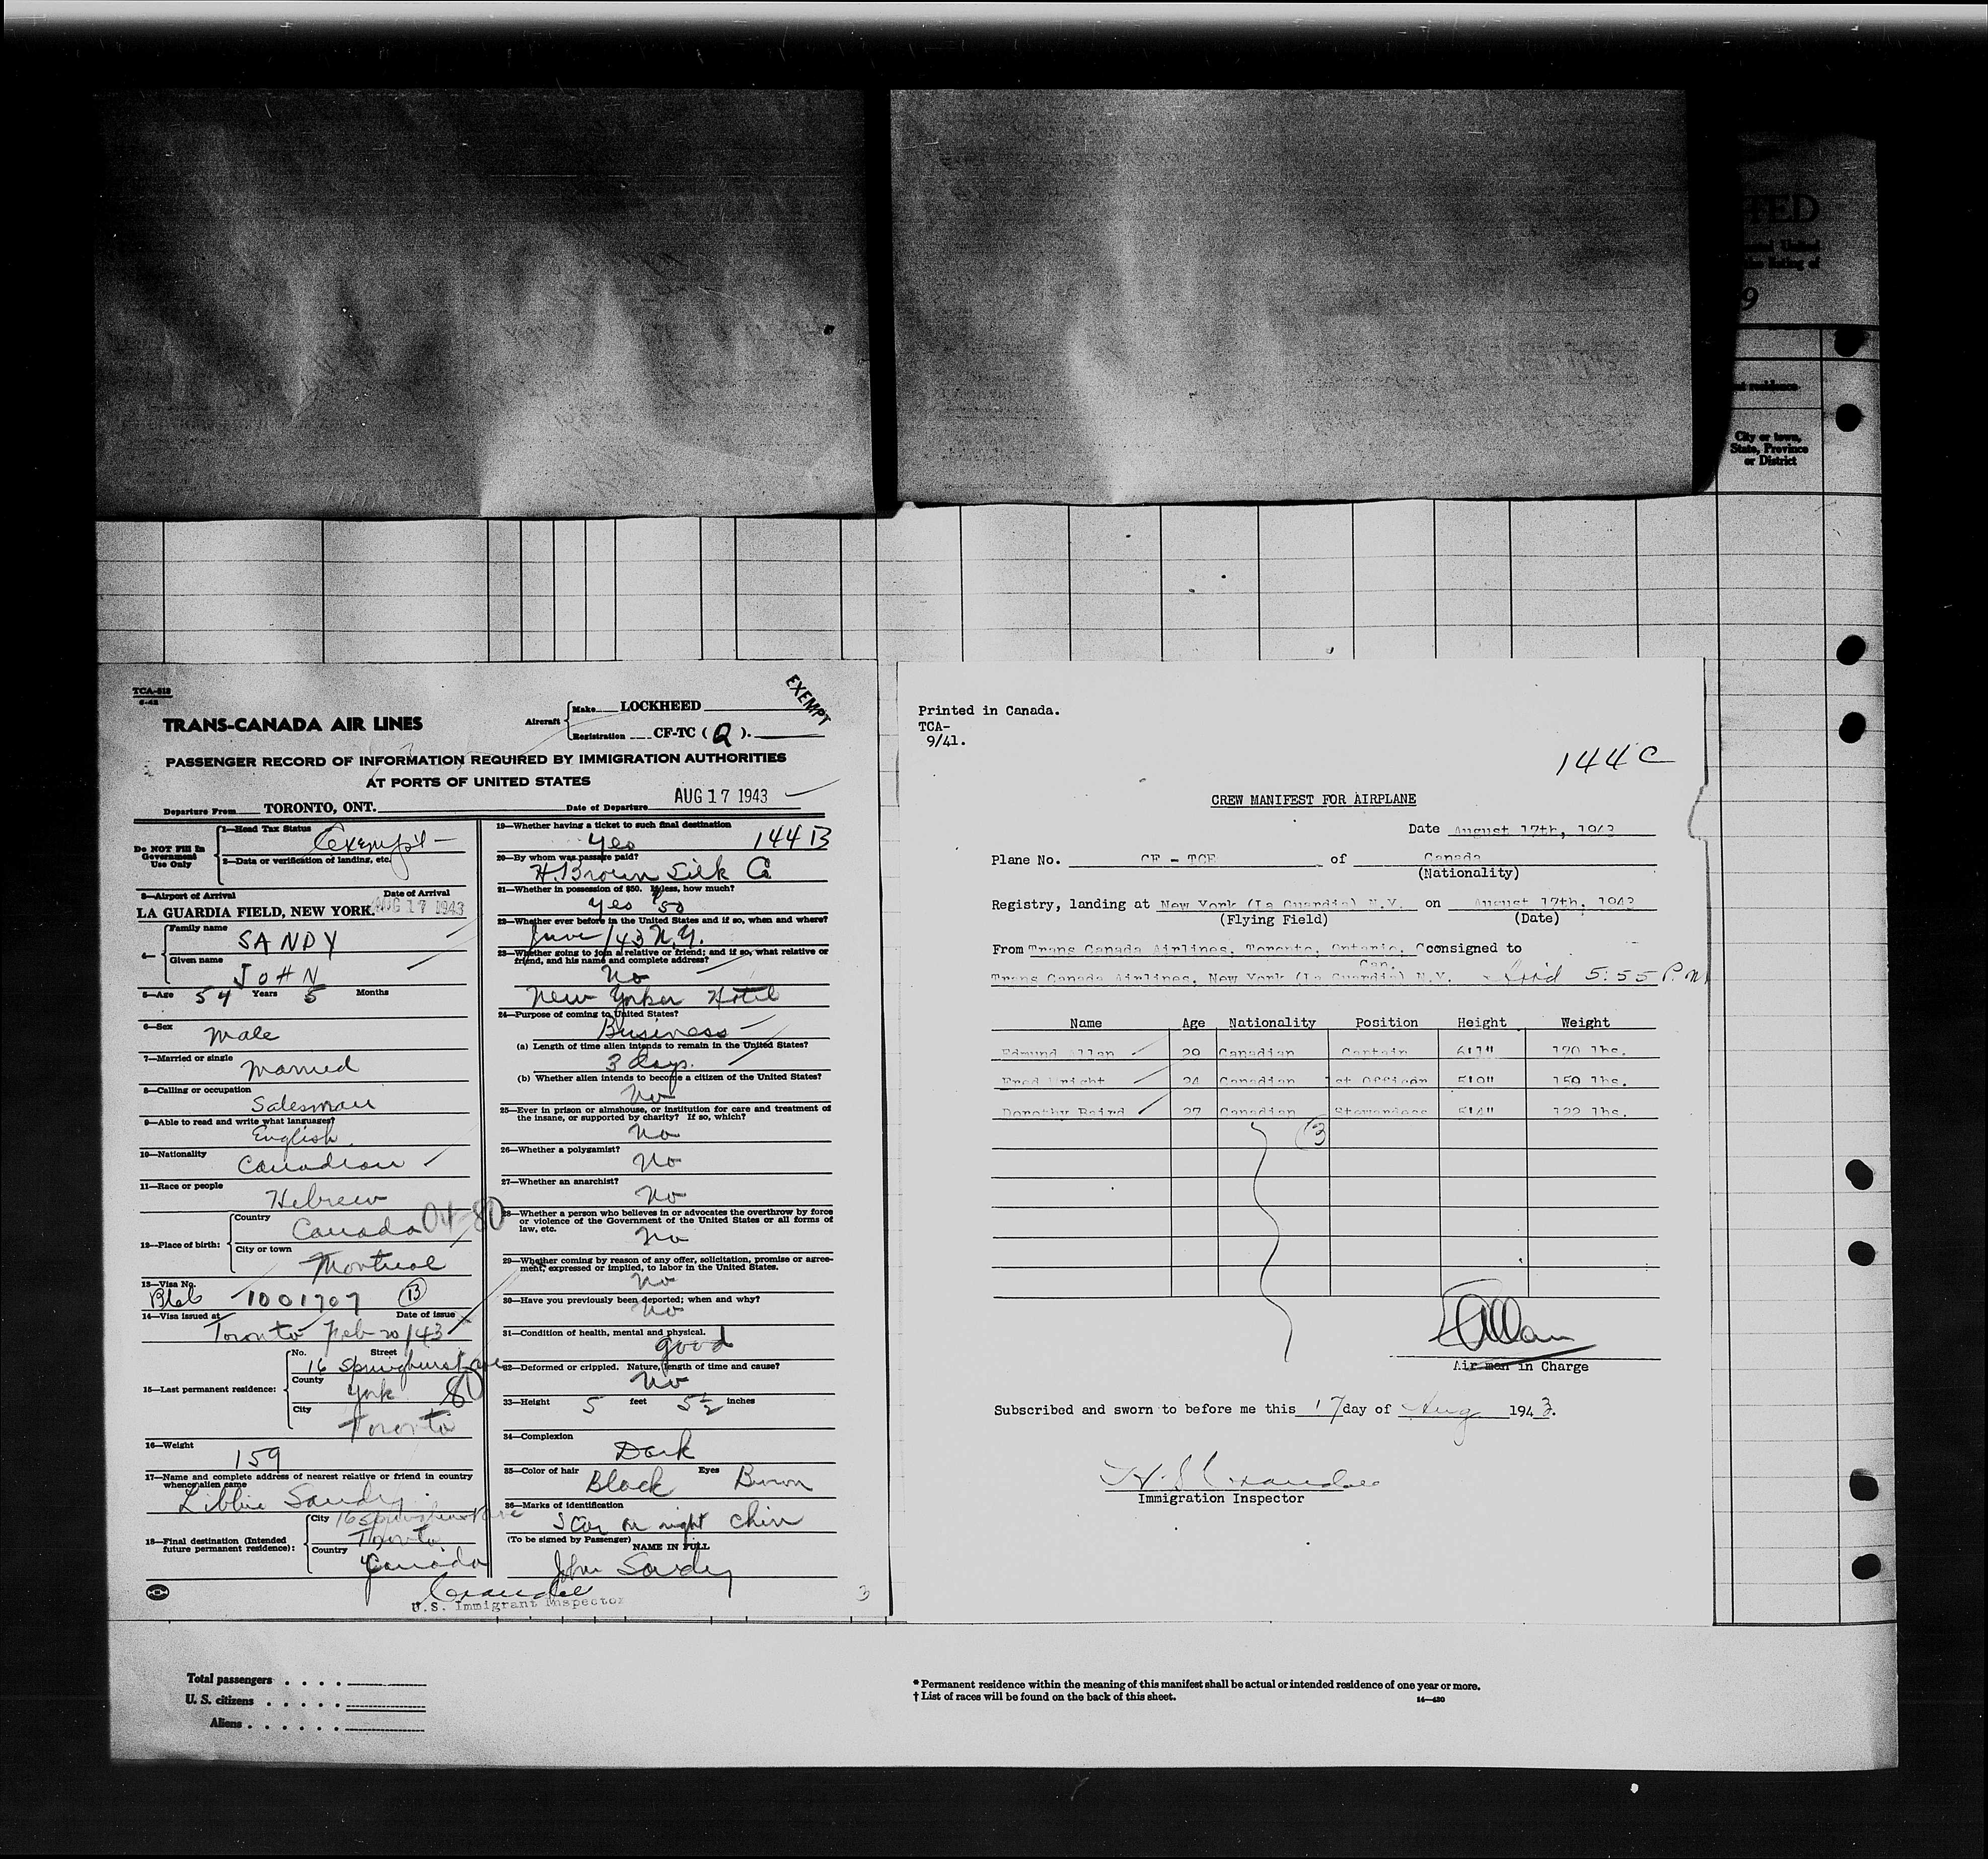 TCA-518
6-42
TRANS-CANADA AIR LINES
Aircraft
Make LOCKHEED
Registration CF-TC ( Q ).
EXEMPT
PASSENGER RECORD OF INFORMATION REQUIRED BY IMMIGRATION AUTHORITIES
AT PORTS OF UNITED STATES
Departure From TORONTO, ONT. Date of Departure AUG 17 1943
Do NOT Fill In
Government
Use Only
1—Head Tax Status Exempt
2—Data or verification of landing, etc.
3—Airport of Arrival Date of Arrival
LA GUARDIA FIELD, NEW YORK. AUG 17 1943
4— Family name SANDY
Given name JOHN
5—Age 54 Years 5 Months
6—Sex Male
7—Married or single Married
8—Calling or occupation
Salesman
9—Able to read and write what languages?
English
10—Nationality Canadian
11—Race or people
Hebrew
12—Place of birth:
Country Canada 04-80
City or town
Montreal
13—Visa No.
1001707 (13)
14—Visa issued at Date of issue
Toronto Feb 20/43
15—Last permanent residence:
No. Street
16 Springhurst ave
County York 80
City
Toronto
16—Weight
159
17—Name and complete address of nearest relative or friend in country
whence alien came
Libbie Sandy
18—Final destination (Intended
future permanent residence):
City 16 Springhurst Ave
Toronto
Country
Canada
Crandee
U.S. Immigrant Inspector
19—Whether having a ticket to such final destination
Yes 144 B
20—By whom was passage paid?
H. Brown Silk Co
21—Whether in possession of $50. If less, how much?
Yes $50
22—Whether ever before in the United States and if so, when and where?
June /43 N.Y.
23—Whether going to join a relative or friend; and if so, what relative or
friend, and his name and complete address?
No
New Yorker Hotel
24—Purpose of coming to United States?
Business
(a) Length of time alien intends to remain in the United States?
3 days.
(b) Whether alien intends to become a citizen of the United States?
No
25—Ever in prison or almshouse, or institution for care and treatment of
the insane, or supported by charity? If so, which?
No
26—Whether a polygamist?
No
27—Whether an anarchist?
No
28—Whether a person who believes in or advocates the overthrow by force
or violence of the Government of the United States or all forms of
law, etc.
No
29—Whether coming by reason of any offer, solicitation, promise or agree-
ment, expressed or implied, to labor in the United States.
No
30—Have you previously been deported; when and why?
No
31—Condition of health, mental and physical.
good
32—Deformed or crippled. Nature, length of time and cause?
No
33—Height 5 feet 5½ inches
34—Complexion
Dark
35—Color of hair Black Eyes Brown
36—Marks of identification
Scar on right chin
(To be signed by Passenger)
NAME IN FULL
John Sandy
3
Printed in Canada.
TCA-
9/41.
144 C
CREW MANIFEST FOR AIRPLANE
Date August 17th, 1943
Plane No. CF - TCE of Canada
(Nationality)
Registry, landing at New York (La Guardia) N.Y. on August 17th, 1943
(Flying Field) (Date)
From Trans Canada Airlines, Toronto, Ontario, Can. consigned to
Trans Canada Airlines, New York (La Guardia) N.Y. 5:55 P.M
Name Age Nationality Position Height Weight
Edmund Allan 29 Canadian Captain 6'1" 170 lbs.
Fred Wright 24 Canadian 1st Officer 5'9" 159 lbs.
Dorothy Baird 27 Canadian Stewardess 5'4" 122 lbs.
(3)
EAllan
Air man in Charge
Subscribed and sworn to before me this 17 day of Aug 1943.
Immigration Inspector
TED
9
City or town,
State, Province
or District
Total passengers . . . .
U. S. citizens . . . . .
Aliens . . . . . .
* Permanent residence within the meaning of this manifest shall be actual or intended residence of one year or more.
† List of races will be found on the back of this sheet.